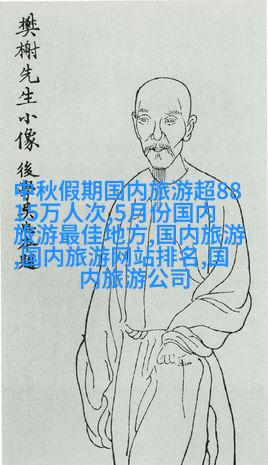 樊榭先生小像
後學吳題
中秋假期国内旅游超88
15万人次,5月份国内
旅游最佳地方,国内旅游
,国内旅游网站排名,国
内旅游公司